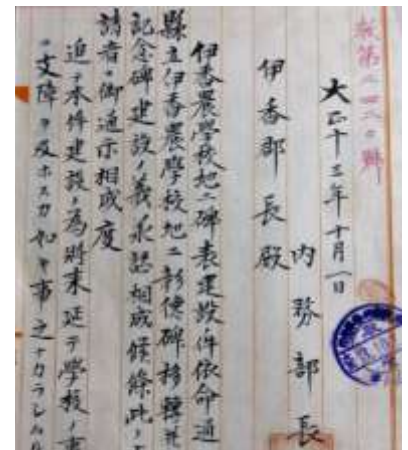 教第二四二〇号
大正十三年十月一日
内務部長
伊香郡長殿
伊香農学校地ニ碑表建設ノ件依命通
縣立伊香農学校地ニ彰徳碑移轉并
記念碑建設ノ義承認相成候條此ノ
請者ヘ御通示相成度
追テ本件建設ノ為將末延テ学校ノ事
ニ支障ヲ及ホスカ如キ事之ナカラシム